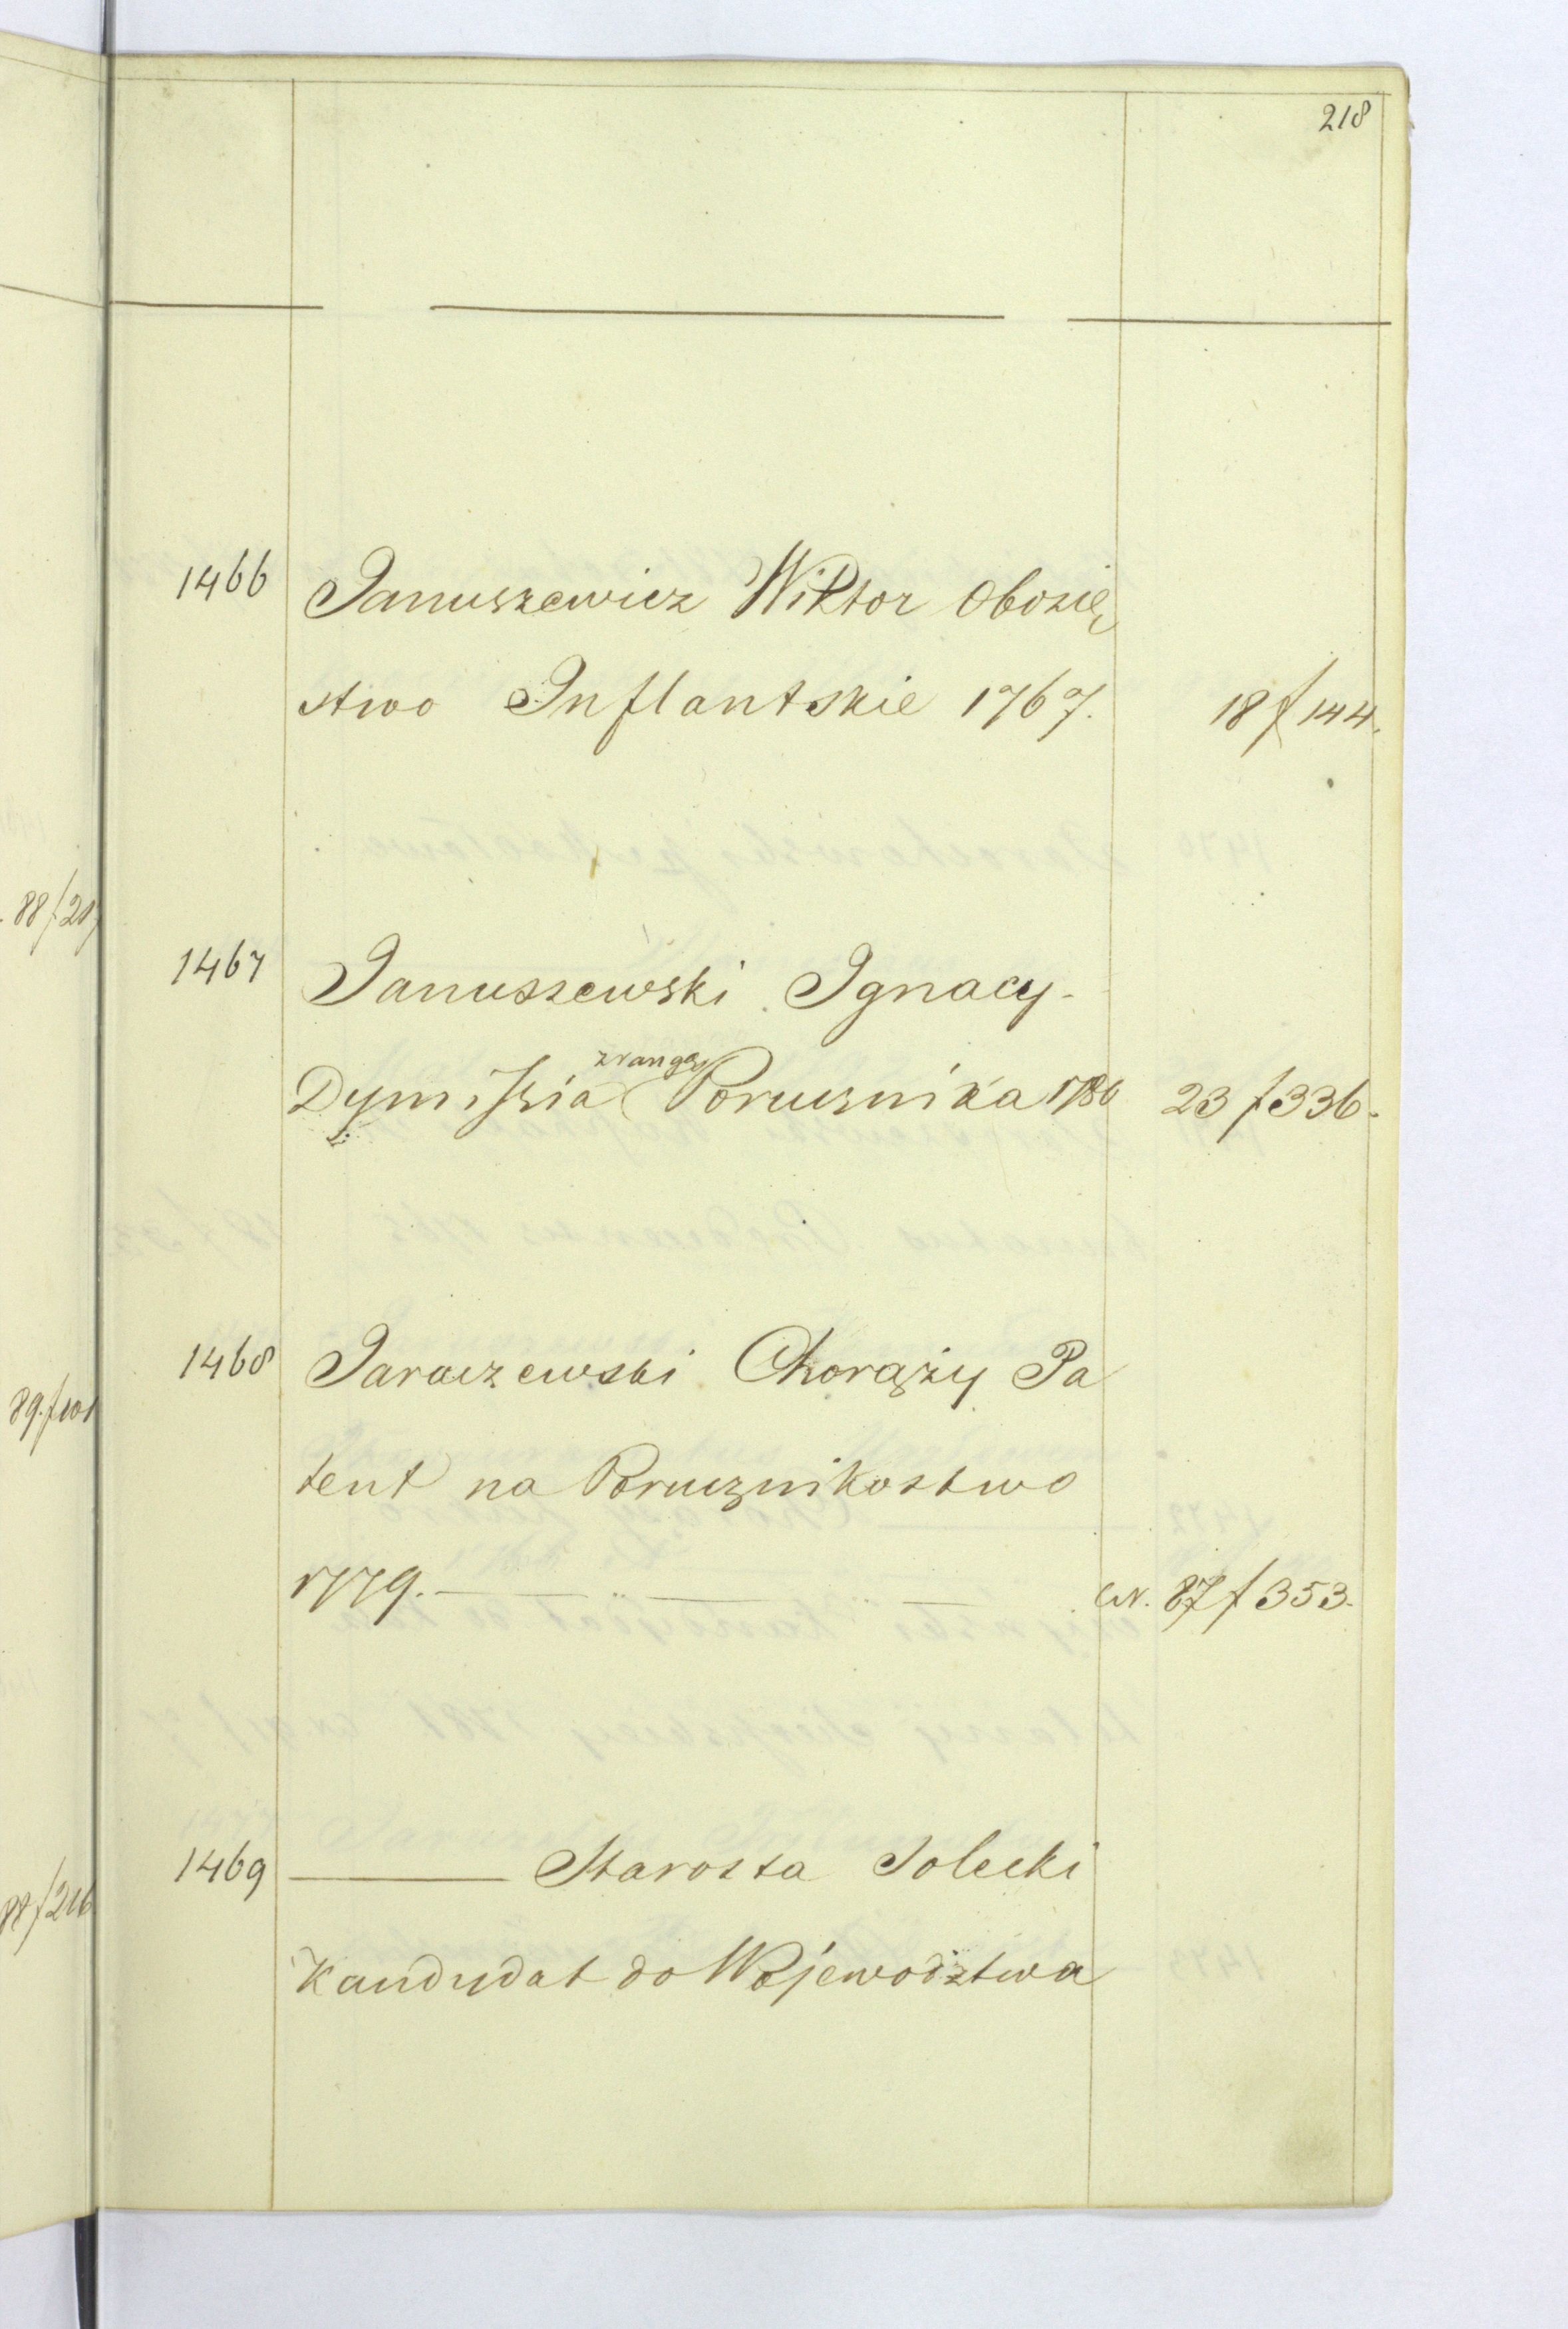 218
1466 Januszewicz Wiktor Obozię
stwo Inflantskie 1767. 18 f 144.
1467 Januszewski Ignacy
z rangą
Dymissia Porucznika 1786 23 f 336.
1468 Jaraczewski Chorąży Pa
tent na Porucznikostwo
1779. CN. 87 f 353.
1469 Starosta Solecki
Kandydat do Wojewodztwa